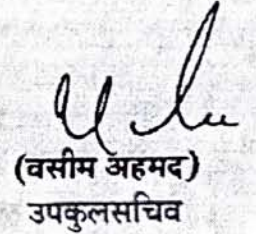 (वसीम अहमद)
उपकुलसचिव